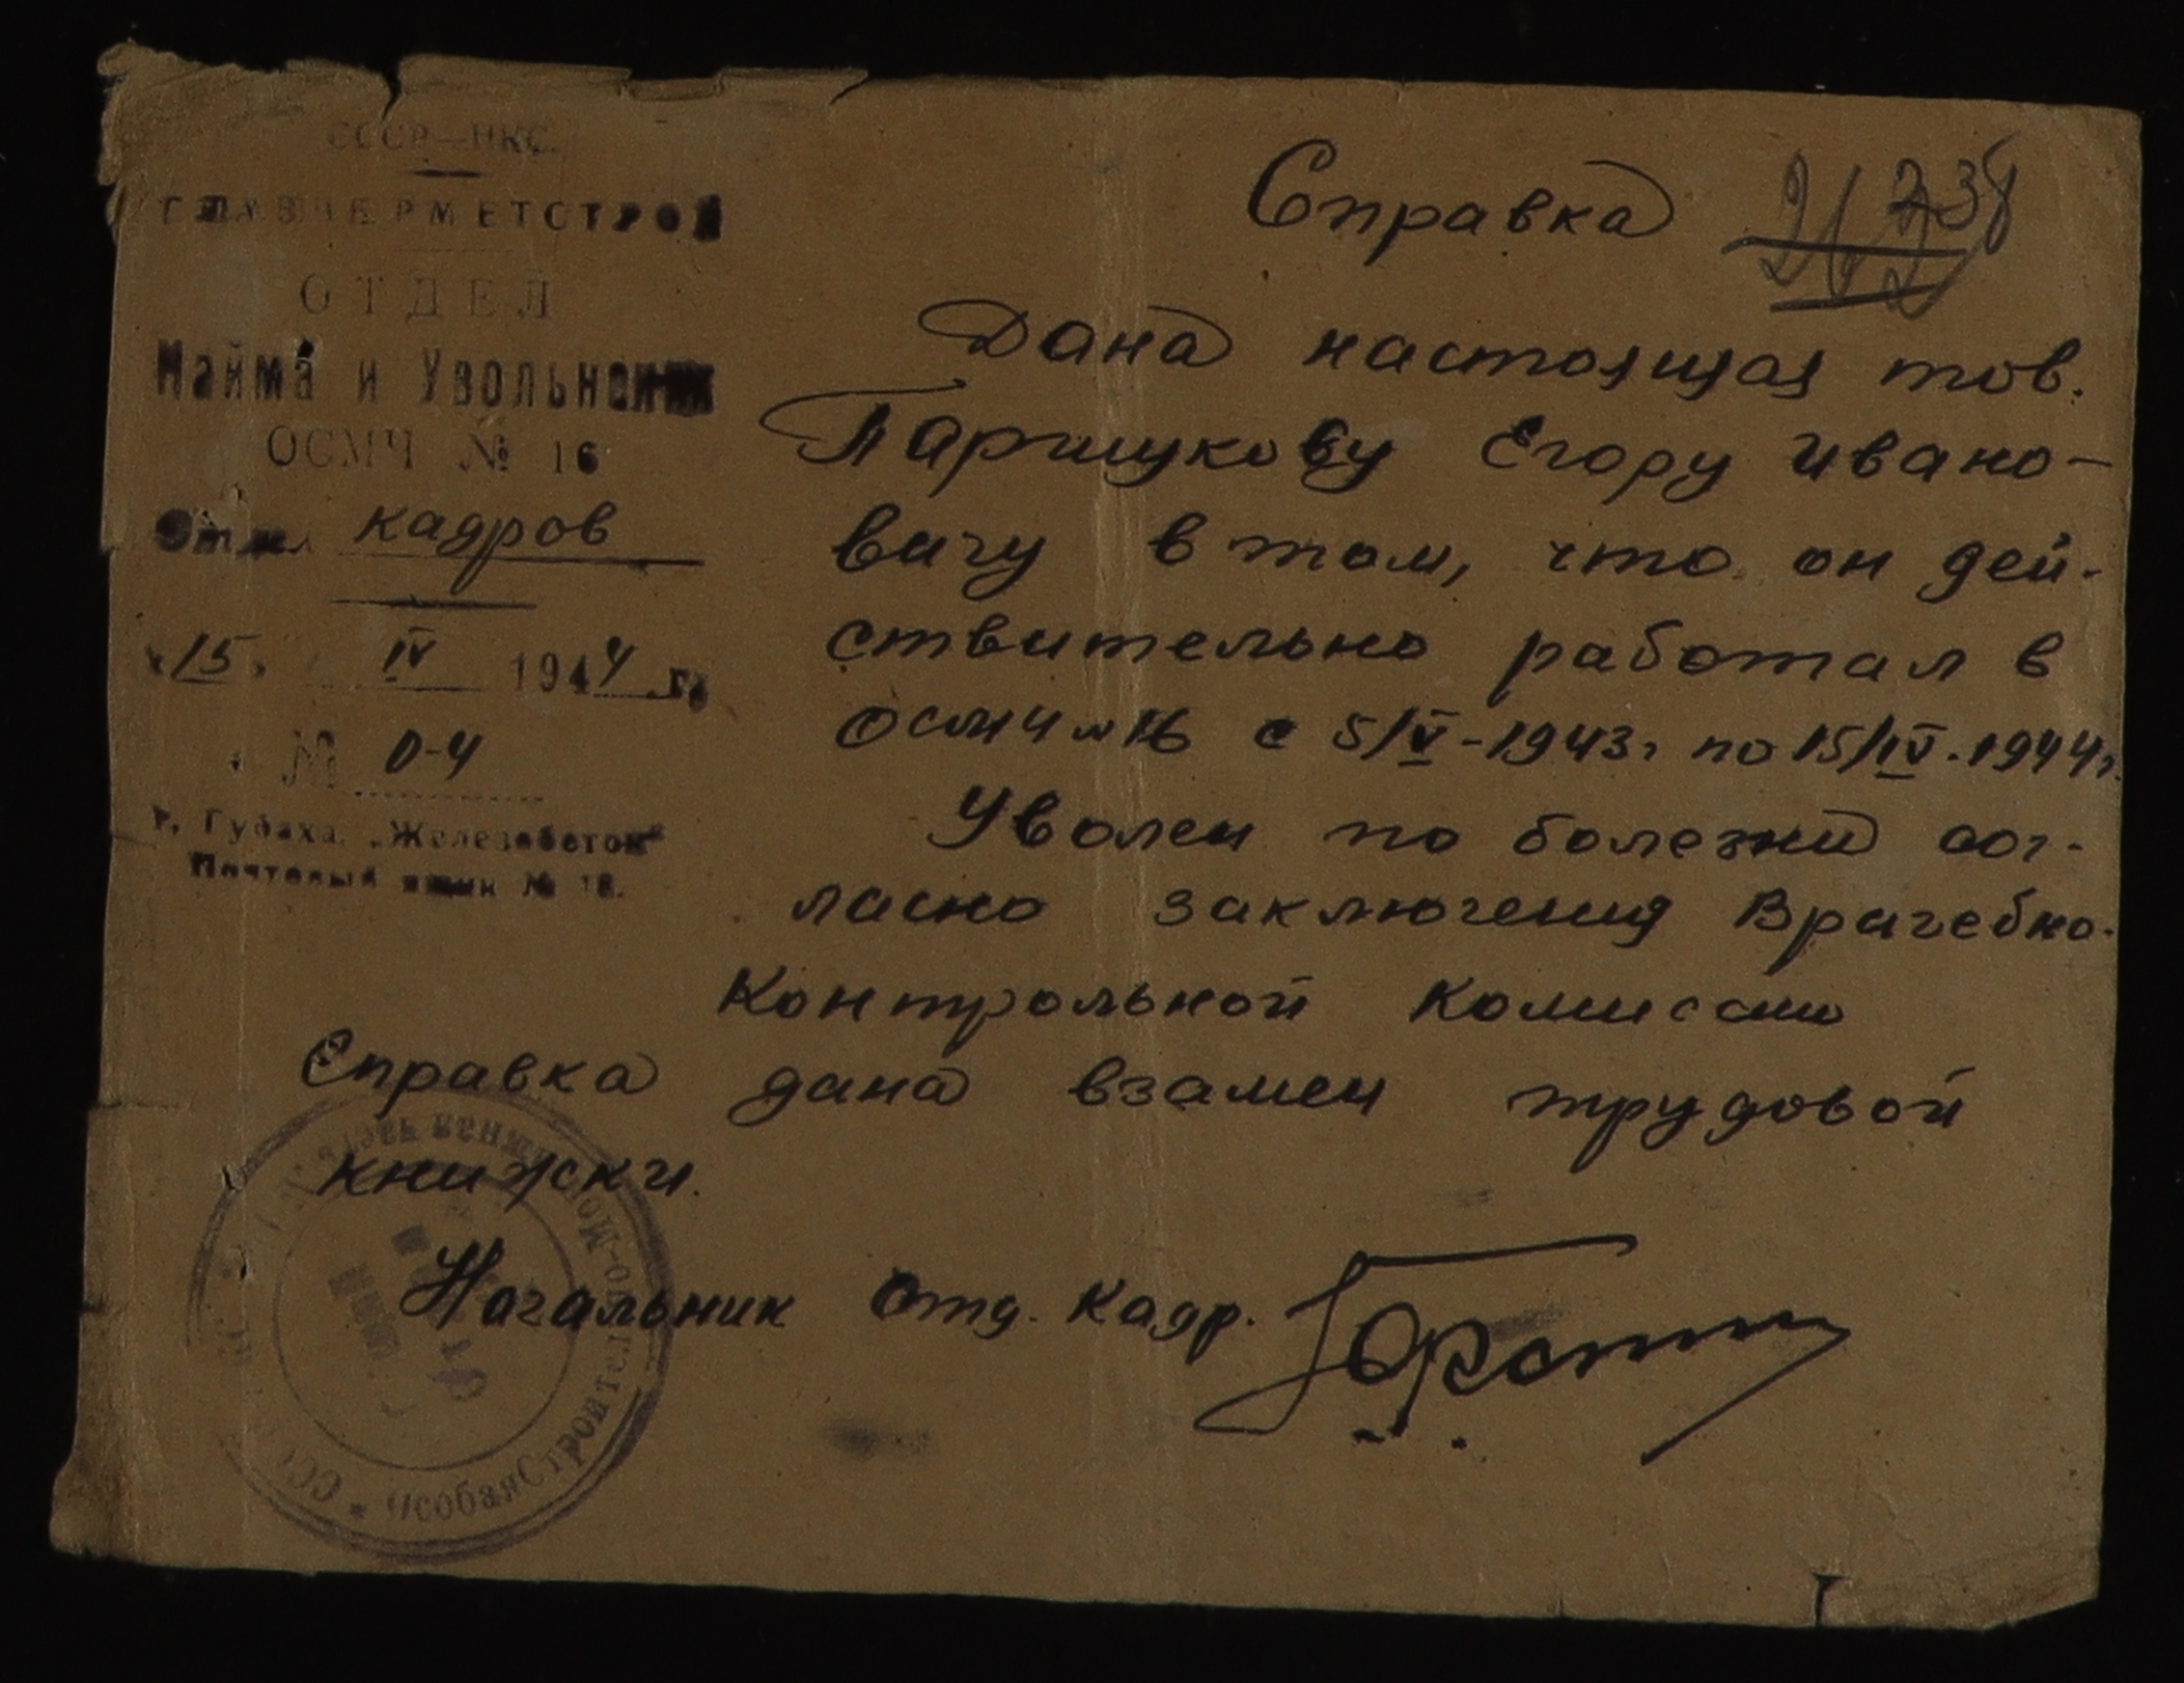 СССР—НКС
ГЛАВЧЕРМЕТСТРОЙ
ОТДЕЛ
Найма и Увольнения
ОСМЧ № 16
Отдел кадров
«15» IV 1944 г.
№ 0-4
г. Губаха, „Железобетон"
Почтовый ящик № 18.
Справка
238
Дана настоящая тов.
Паршукову Егору Ивано-
вичу в том, что он дей-
ствительно работал в
ОСМЧ №16 с 5/IV-1943г по 15/IV-1944г.
Уволен по болезни сог-
ласно заключения Врачебно-
Контрольной Комиссии
Справка дана взамен трудовой
книжки.
Начальник Отд. Кадр.
СССР * Особая Строительно-Монтажная Часть